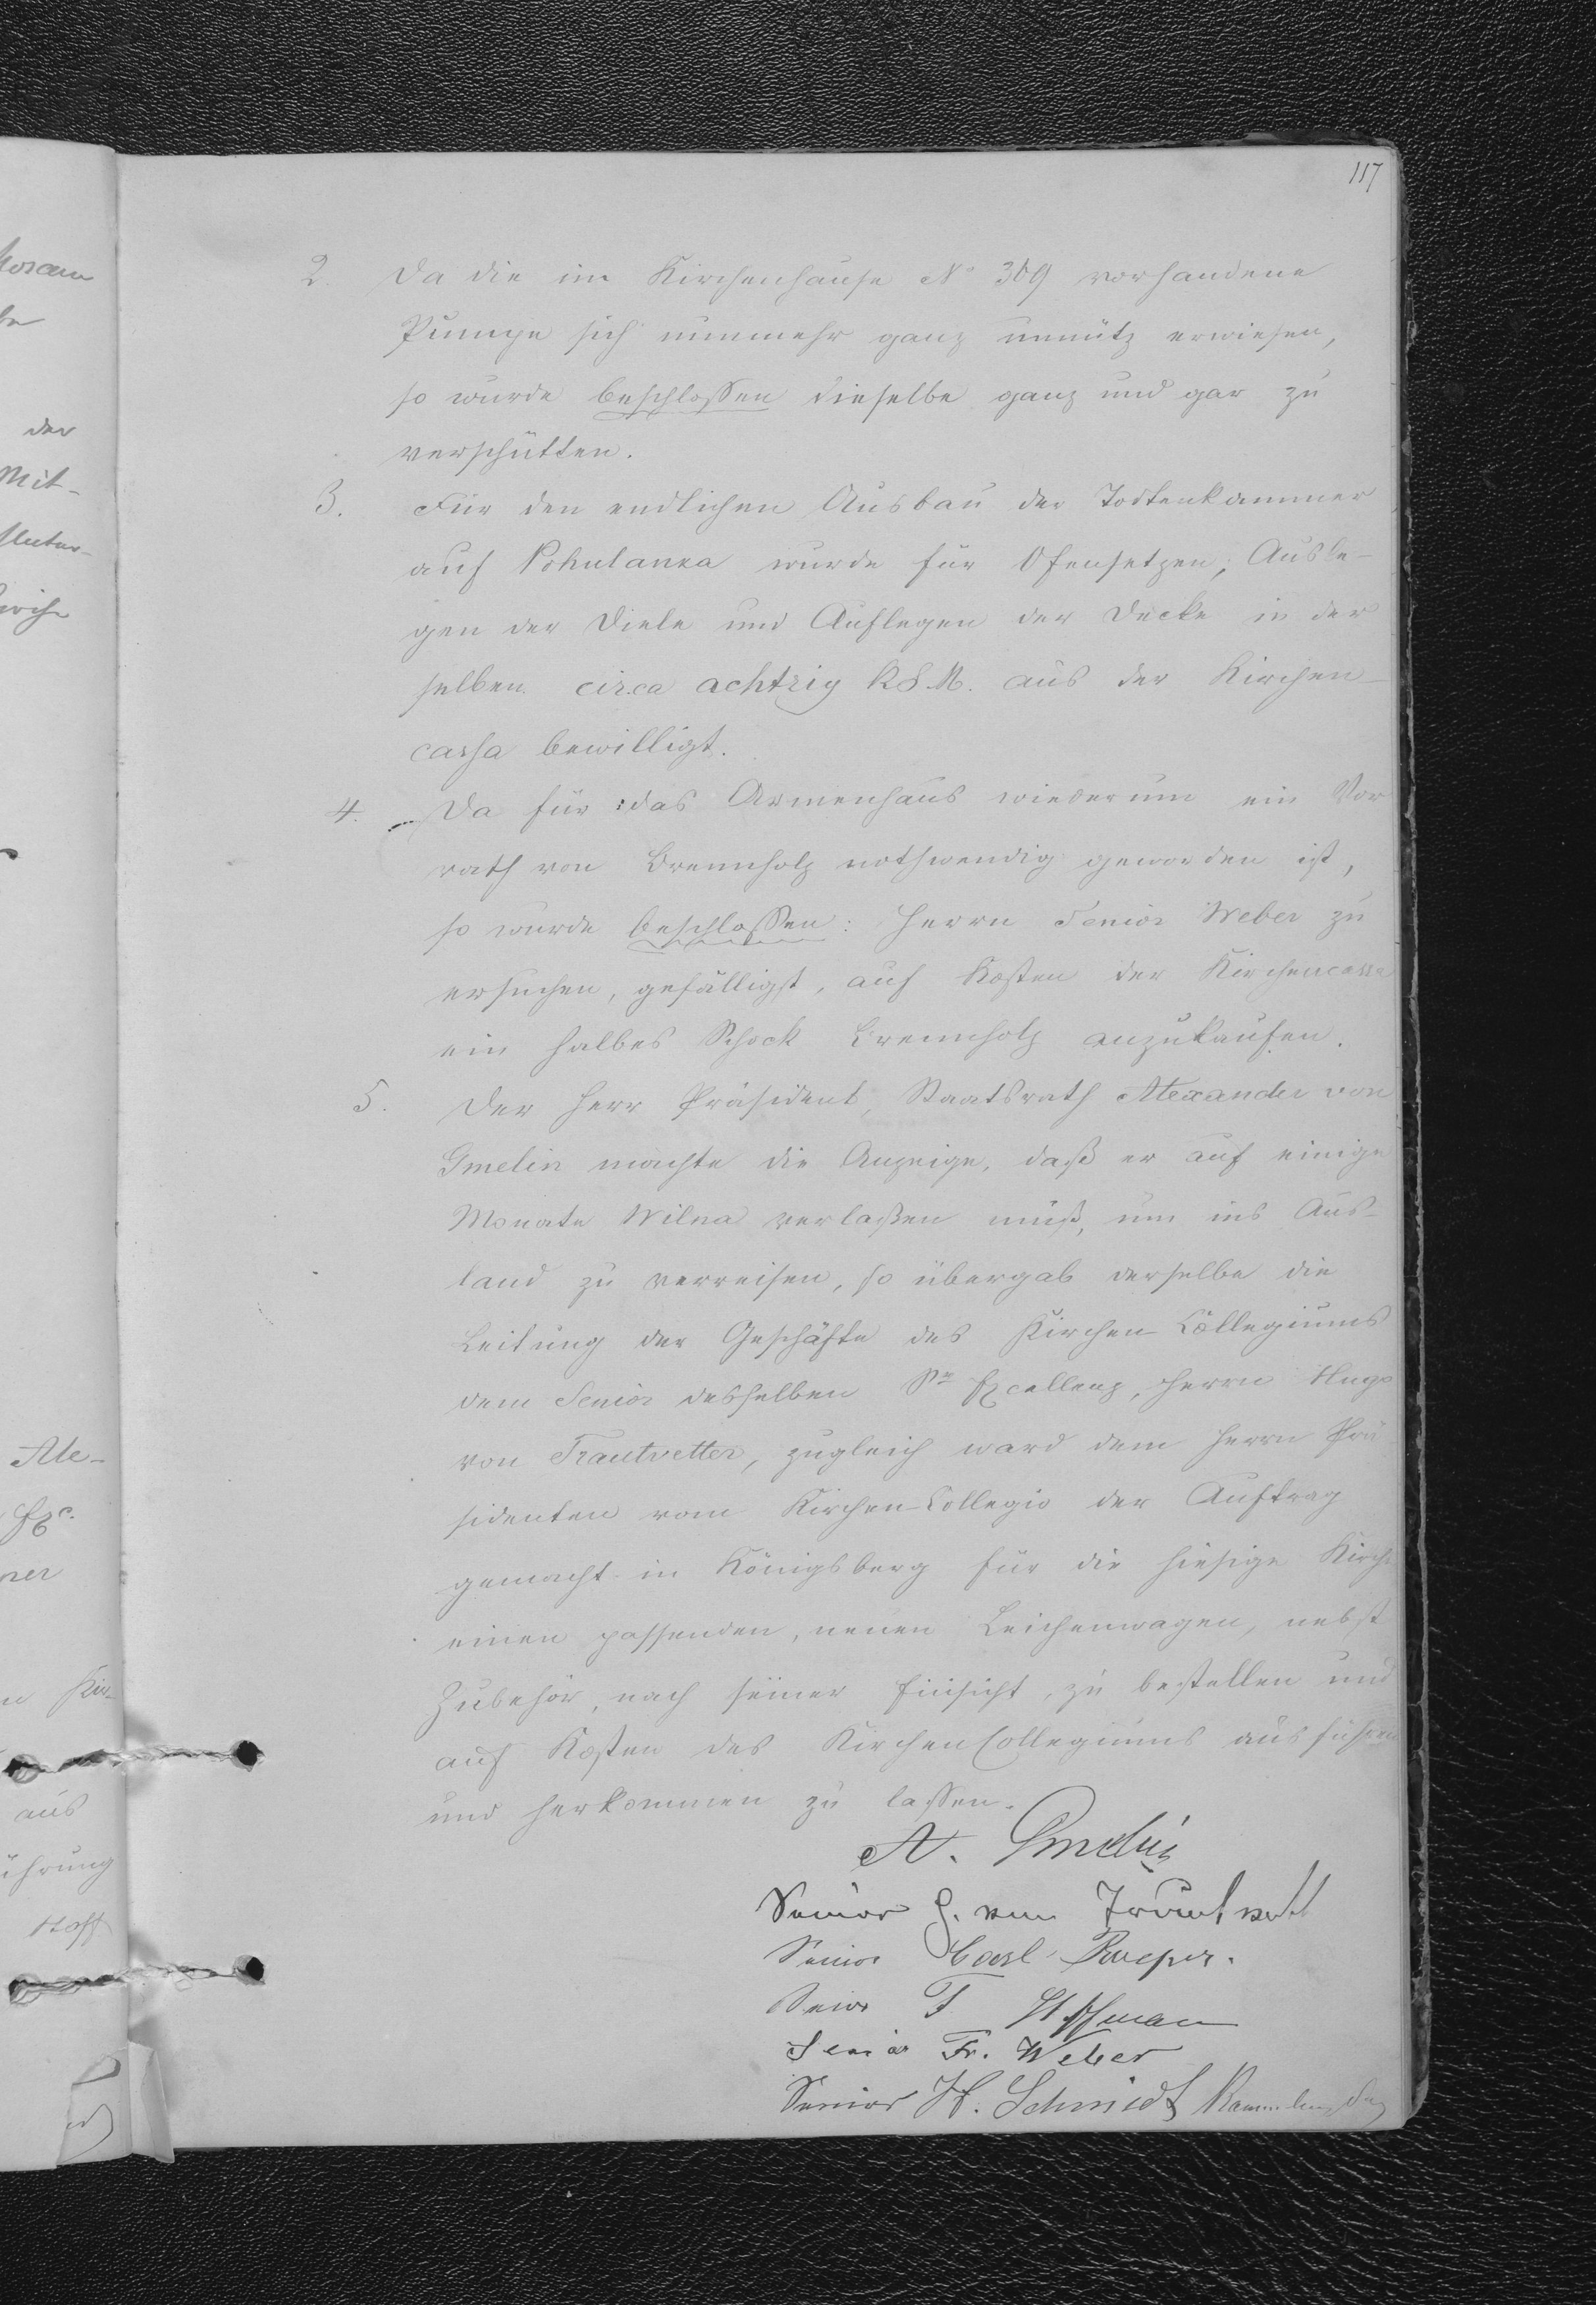 117
2. Da die im Kirchenhause No 309 vorhandene
Pumpe sich nunmehr ganz unnütz erwiesen,
so wurde beschloßen dieselbe ganz und gar zu
verschütten.
3. Für den endlichen Ausbau der Todtenkammer
auf Pohulanka wurde für Ofensetzen, Ausle-
gen der Diele und Auflegen der Decke in der
selben circa achtzig R.S.M. aus der Kirchen-
cassa bewilligt.
4. Da für das Armenhaus wiederum ein Vor
rath von Brennholz nothwendig geworden ist,
so wurde beschloßen: Herrn Senior Weber zu
ersuchen, gefälligst, auf Kosten der Kirchencassa
ein halbes Schock Brennholz anzukaufen.
5. Der Herr Präsident, Staatsrath Alexander von
Gmelin machte die Anzeige, daß er auf einige
Monate Wilna verlaßen muß, um ins Aus-
land zu verreisen, so übergab derselbe die
Leitung der Geschäfte des Kirchen-Collegiums
dem Senior desselben Sr Excellenz, Herrn Hugo
von Trautvetter, zugleich ward dem Herrn Prä
sidenten vom Kirchen-Collegio der Auftrag
gemacht in Königsberg für die hiesige Kirche
einen passenden, neuen Leichenwagen, nebst
Zubehör, nach seiner Einsicht, zu bestellen und
auf Kosten des Kirchen Collegiums ausführen
und herkommen zu laßen.
A. Gmelin
Senior H. von Trautvett
Senior Carl
Senior F Hoffman
Senior Fr. Weber
Senior H. Schmidt